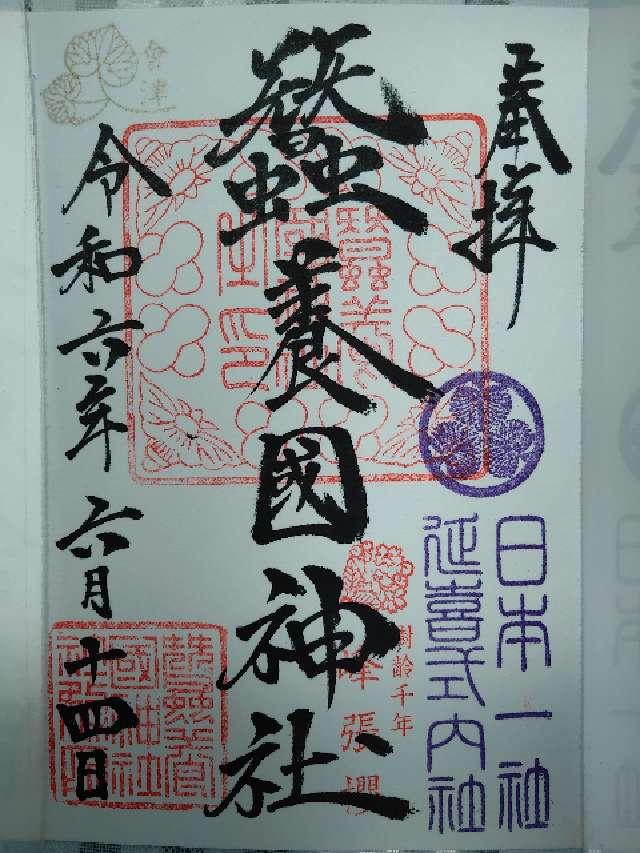 奉拝
日本一社
延喜式内社
樹齢千年
峰張桜
蠶養國神社
會津
令和六年六月十四日